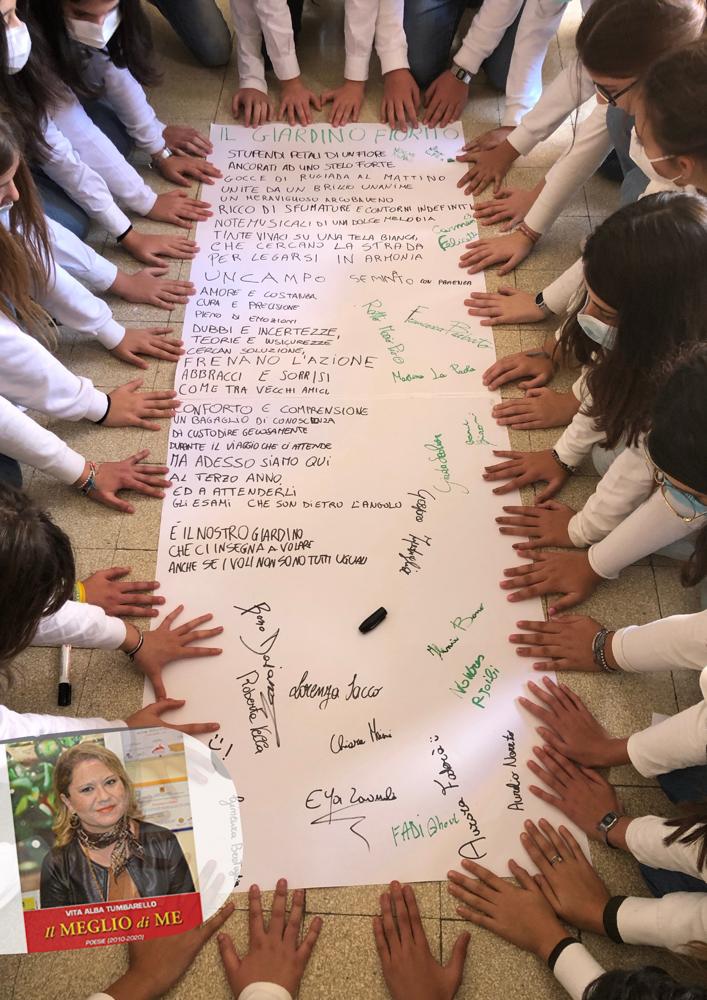 IL GIARDINO FIORITO
STUPENDI PETALI DI UN FIORE
ANCORATI AD UNO STELO FORTE
GOCCE DI RUGIADA AL MATTINO
UNITE DA UN BRILLIO UNANIME
UN MERAVIGLIOSO ARCOBALENO
RICCO DI SFUMATURE E CONTORNI INDEFINITI
NOTE MUSICALI DI UNA DOLCE MELODIA
TINTE VIVACI SU UNA TELA BIANCA,
CHE CERCANO LA STRADA
PER LEGARSI IN ARMONIA
UN CAMPO SEMINATO CON PAZIENZA
AMORE E COSTANZA
CURA E PRECISIONE
PIENO DI EMOZIONI
DUBBI E INCERTEZZE,
TEORIE E INSICUREZZE,
CERCAN SOLUZIONE,
FRENANO L'AZIONE
ABBRACCI E SORRISI
COME TRA VECCHI AMICI,
CONFORTO E COMPRENSIONE
UN BAGAGLIO DI CONOSCENZA
DA CUSTODIRE GELOSAMENTE
DURANTE IL VIAGGIO CHE CI ATTENDE
MA ADESSO SIAMO QUI
AL TERZO ANNO,
ED A ATTENDERLI
GLI ESAMI CHE SON DIETRO L'ANGOLO
È IL NOSTRO GIARDINO
CHE CI INSEGNA A VOLARE
ANCHE SE I VOLI NON SONO TUTTI UGUALI
Lorenza Sacco
Roberta Vella
Chiara
Eya
FADI
Aurora
VITA ALBA TUMBARELLO
Il MEGLIO di ME
POESIE (2010-2020)